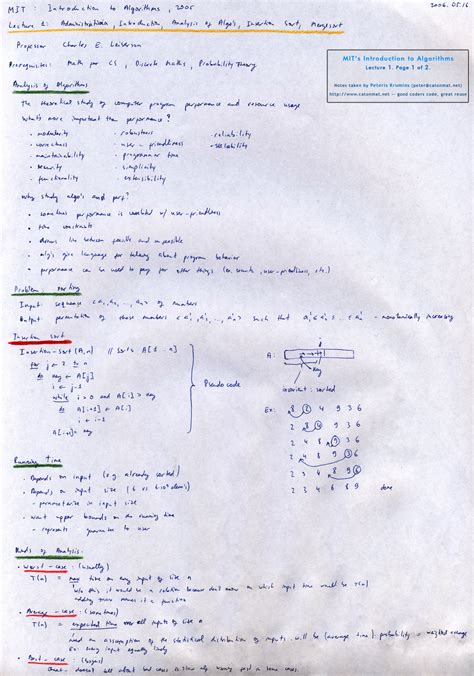 MIT : Introduction to Algorithms , 2005
2006.05.16
Lecture 1: Administrivia, Introduction, Analysis of Algo's, Insertion Sort, Mergesort
Professor Charles E. Leiserson
MIT's Introduction to Algorithms
Lecture 1. Page 1 of 2.
Notes taken by Peteris Krumins (peter@catonmat.net)
http://www.catonmat.net — good coders code, great reuse
Prerequisites: Math for CS , Discrete Maths , Probability Theory
Analysis of Algorithms
The theoretical study of computer program performance and resource usage
What's more important than performance?
• modularity • robustness • reliability
• correctness • user-friendliness • scalability
• maintainability • programmer time
• security • simplicity
• functionality • extensibility
Why study algo's and perf?
• sometimes performance is correlated w/ user-friendliness
• time constraints
• line between feasible and impossible
• alg's give language for talking about program behavior
• performance can be used to pay for other things (user-friendliness, etc.)
Problem: sorting
Input: sequence <a₁, a₂, ..., aₙ> of numbers
Output: permutation of those numbers <a'₁, a'₂, ..., a'ₙ> such that a'₁ ≤ a'₂ ≤ ... ≤ a'ₙ - monotonically increasing
Insertion sort
Insertion-sort (A, n) // Sorts A[1..n]
for j ← 2 to n
do key ← A[j]
i ← j-1
while i > 0 and A[i] > key
do A[i+1] ← A[i]
i ← i-1
A[i+1] = key
Pseudo code
A:
i
j
key
invariant: sorted
Ex: 8 2 4 9 3 6
2 8 4 9 3 6
2 4 8 9 3 6
2 4 8 9 3 6
2 3 4 8 9 6
2 3 4 6 8 9 done
Running Time
• Depends on input (e.g. already sorted)
• Depends on input size (6 vs 6·10⁹ elem's)
- parametrize in input size
• want upper bounds on the running time
- represents guarantee to user
Kinds of Analysis:
• Worst-case: (usually)
T(n) = max time on any input of size n
w/o this it would be a relation because don't know on which input time would be T(n)
adding max makes it a function
• Average-case: (sometimes)
T(n) = expected time over all inputs of size n
need an assumption of the statistical distribution of inputs
Ex: every input equally likely
• Best-case: (bogus)